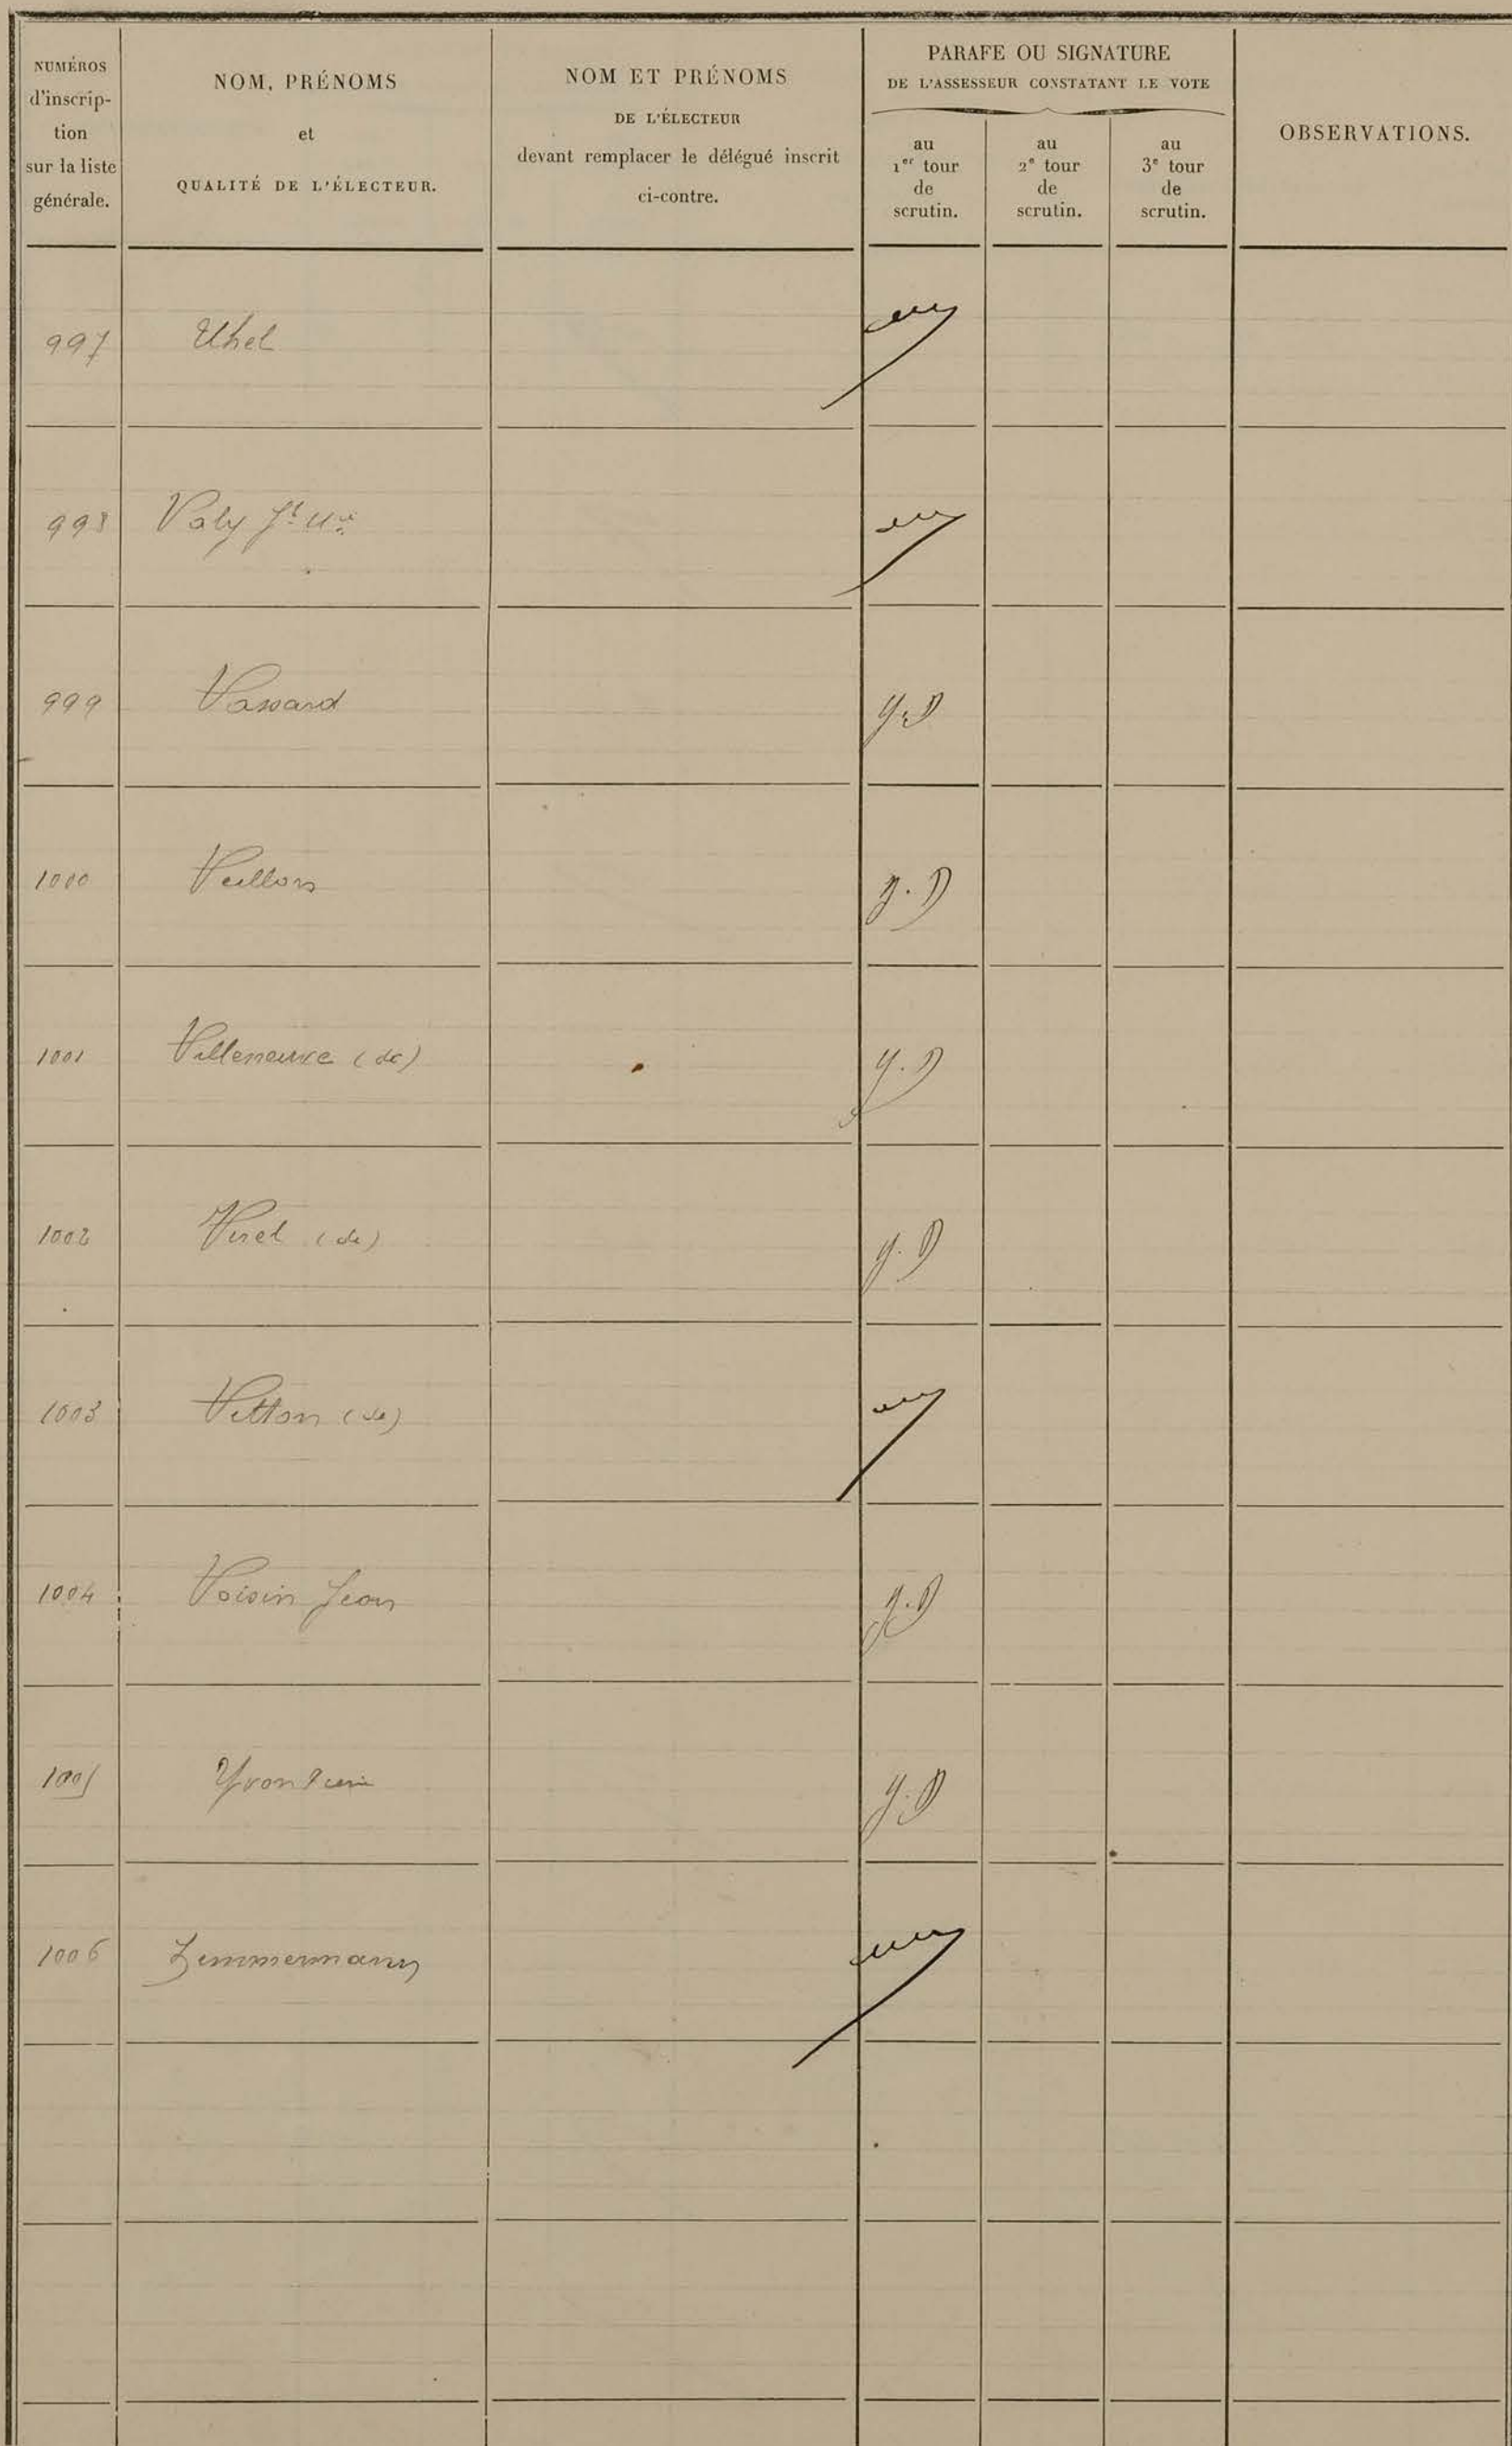 NUMÉROS
d'inscrip-
tion
sur la liste
générale.
NOM, PRÉNOMS
et
QUALITÉ DE L'ÉLECTEUR.
NOM ET PRÉNOMS
DE L'ÉLECTEUR
devant remplacer le délégué inscrit
ci-contre.
PARAFE OU SIGNATURE
DE L'ASSESSEUR CONSTATANT LE VOTE
au
1er tour
de
scrutin.
au
2e tour
de
scrutin.
au
3e tour
de
scrutin.
OBSERVATIONS.
997 Uhel
998 Valy
999 Vassard
1000 Veillon
1001 Villeneuve (de)
1002 Virel (de)
1003 Vitton (de)
1004 Voisin Jean
1005 Yvon
1006 Zimmermann